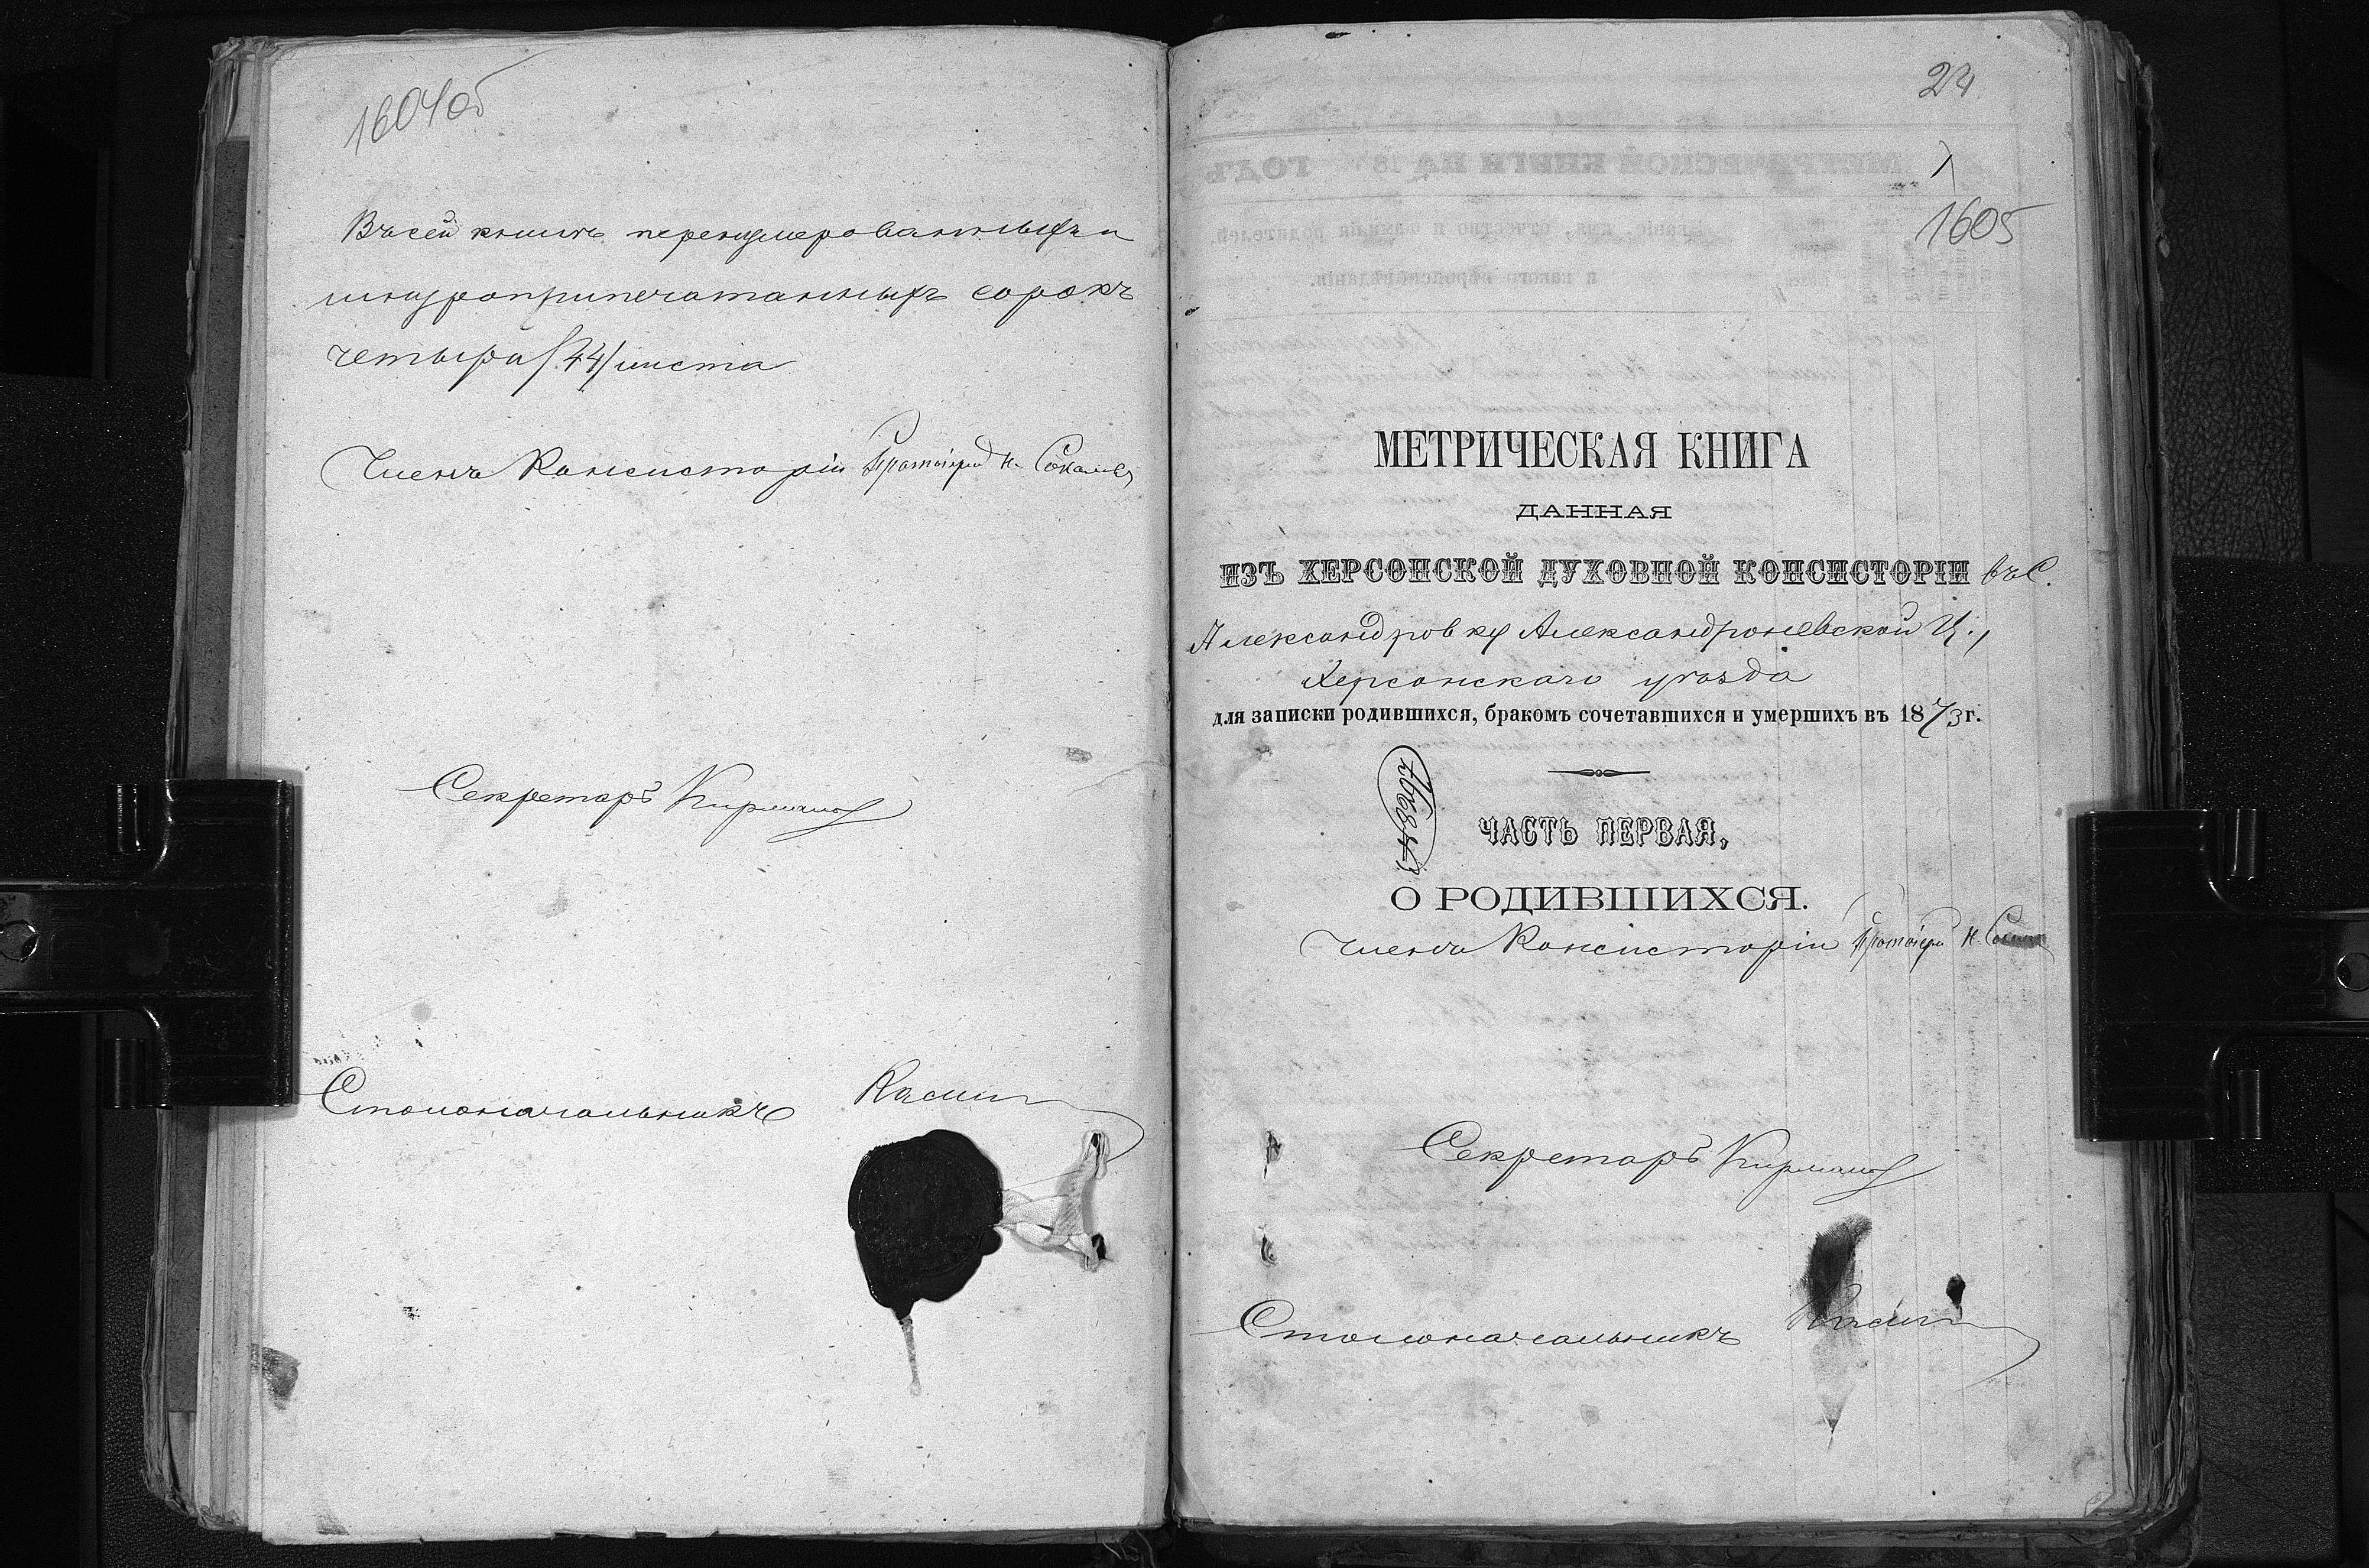 1604об
Въ сей книгѣ перенумерованныхъ и
шнуроприпечатанныхъ сорокъ
четыри /44/ листа
Членъ Консисторіи Протоіерей Н. Соколовъ
Секретарь
Столоначальникъ
24
1
1605
МЕТРИЧЕСКАЯ КНИГА
ДАННАЯ
ИЗЪ ХЕРСОНСКОЙ ДУХОВНОЙ КОНСИСТОРІИ въ С.
Александровку Александроневской Ц.,
Херсонскаго уѣзда
для записки родившихся, бракомъ сочетавшихся и умершихъ въ 1873 г.
ЧАСТЬ ПЕРВАЯ,
О РОДИВШИХСЯ.
Членъ Консисторіи Протоіерей Н.
Секретарь
Столоначальникъ